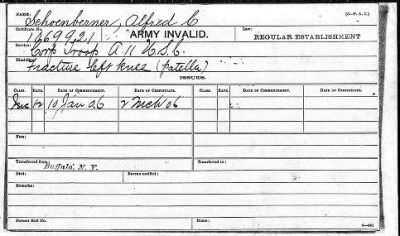 NAME: (3-F. A. I.)
Schoenberner, Alfred C
Certificate No. ARMY INVALID. Law:
1669921 REGULAR ESTABLISHMENT
Service:
Corp Troop A. 11 U.S.C.
Disability:
Fracture left knee (patella)
ISSUES.
CLASS. RATE. DATE OF COMMENCEMENT. DATE OF CERTIFICATE. CLASS. RATE. DATE OF COMMENCEMENT. DATE OF CERTIFICATE.
12 10 Jan 06 2 Mch 06
Fee:
Transferred from Transferred to
Buffalo, N. Y.
Died: Bureau notified:
Remarks:
Former Roll No. Home: